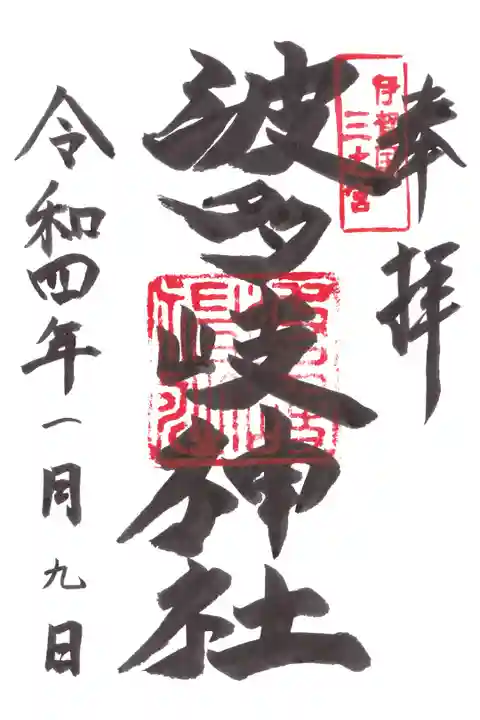 奉拝
伊賀国
三之宮
波多岐神社
令和四年一月九日